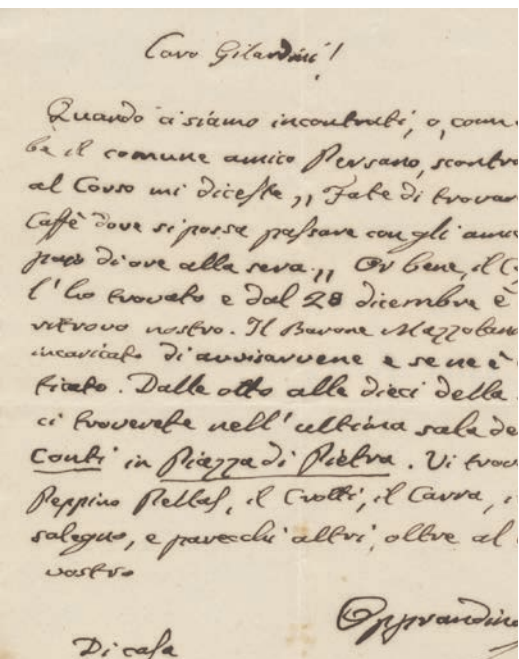 Caro Gilardini!
Quando ci siamo incontrati, o, com
be il comune amico Persano, scontra
al Corso mi diceste „ Fate di trovar
Caffè dove si possa passare con gli amic
pajo di ore alla sera „ Or bene, il C
l'ho trovato e dal 28 dicembre è
ritrovo nostro. Il Barone Mazzolan
incaricato di avvisarvene e se ne è
ticato. Dalle otto alle dieci della
ci troverete nell'ultima sala de
Conti in Piazza di Pietra. Vi trov
Peppino Pellas, il Crotti, il Carra,
salegno, e parecchi altri, oltre al
vostro
Opprandino
Di casa